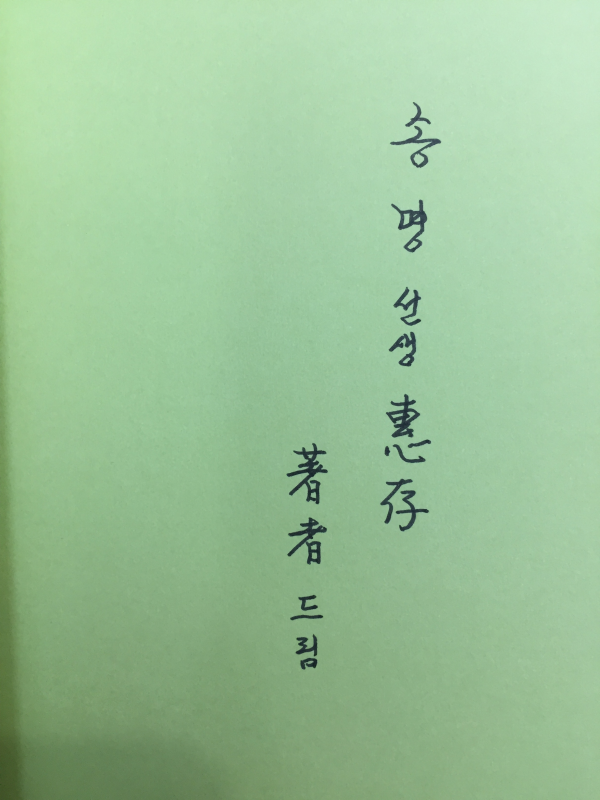 송명선생惠存
著者드림